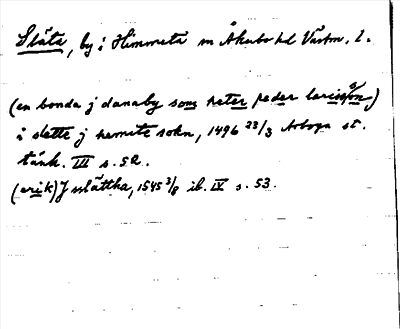 Släta, by i Himmeta sn Åkerbo hd Västm. l.
(en bonda j danaby som heter peder larisson)
i slette j hemite sokn, 1496 23/3 Arboga st.
tänk. III s. 52.
(erik) J slättha, 1545 3/8 ib. IV s. 53.